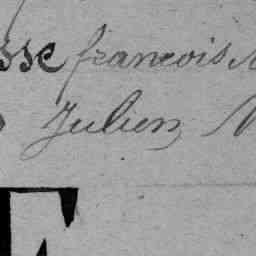 sse françois
Julien
E